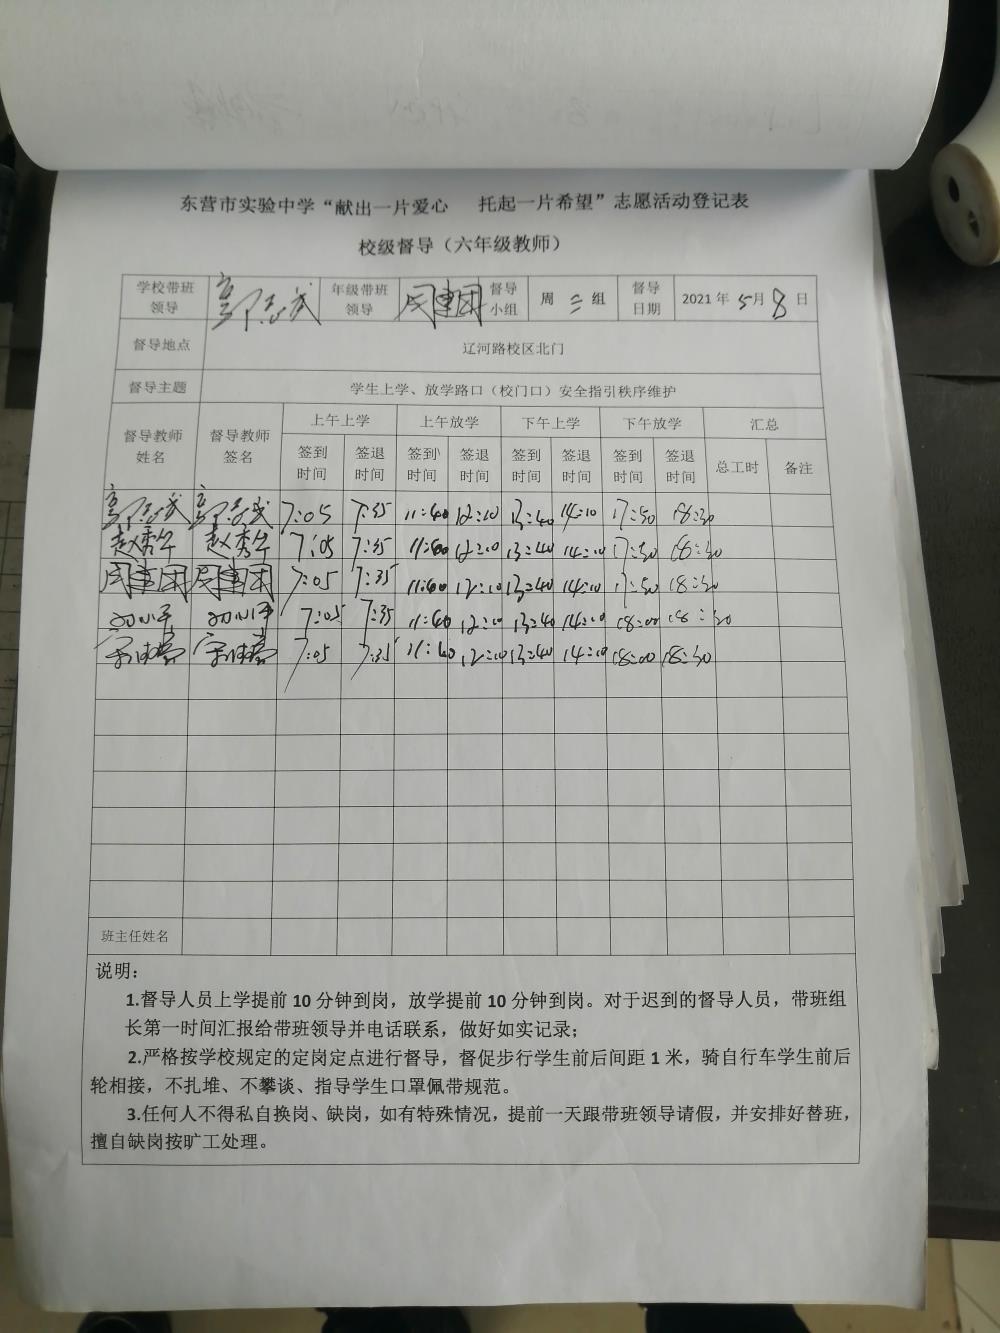 东营市实验中学“献出一片爱心 托起一片希望”志愿活动登记表
校级督导（六年级教师）
学校带班领导 年级带班领导 周建团 督导小组 周三组 督导日期 2021年5月8日
督导地点 辽河路校区北门
督导主题 学生上学、放学路口（校门口）安全指引秩序维护
督导教师姓名 督导教师签名 上午上学 上午放学 下午上学 下午放学 汇总
签到时间 签退时间 签到时间 签退时间 签到时间 签退时间 签到时间 签退时间 总工时 备注
7:05 7:35 11:40 12:10 13:40 14:10 17:50 18:30
赵秀华 赵秀华 7:05 7:35 11:40 12:10 13:40 14:10 17:50 18:30
周建团 周建团 7:05 7:35 11:40 12:10 13:40 14:10 17:50 18:30
7:05 7:35 11:40 12:10 13:40 14:10 18:00 18:30
7:05 7:35 11:40 12:10 13:40 14:10 18:00 18:30
班主任姓名
说明：
1.督导人员上学提前10分钟到岗，放学提前10分钟到岗。对于迟到的督导人员，带班组
长第一时间汇报给带班领导并电话联系，做好如实记录；
2.严格按学校规定的定岗定点进行督导，督促步行学生前后间距1米，骑自行车学生前后
轮相接，不扎堆、不攀谈、指导学生口罩佩带规范。
3.任何人不得私自换岗、缺岗，如有特殊情况，提前一天跟带班领导请假，并安排好替班，
擅自缺岗按旷工处理。